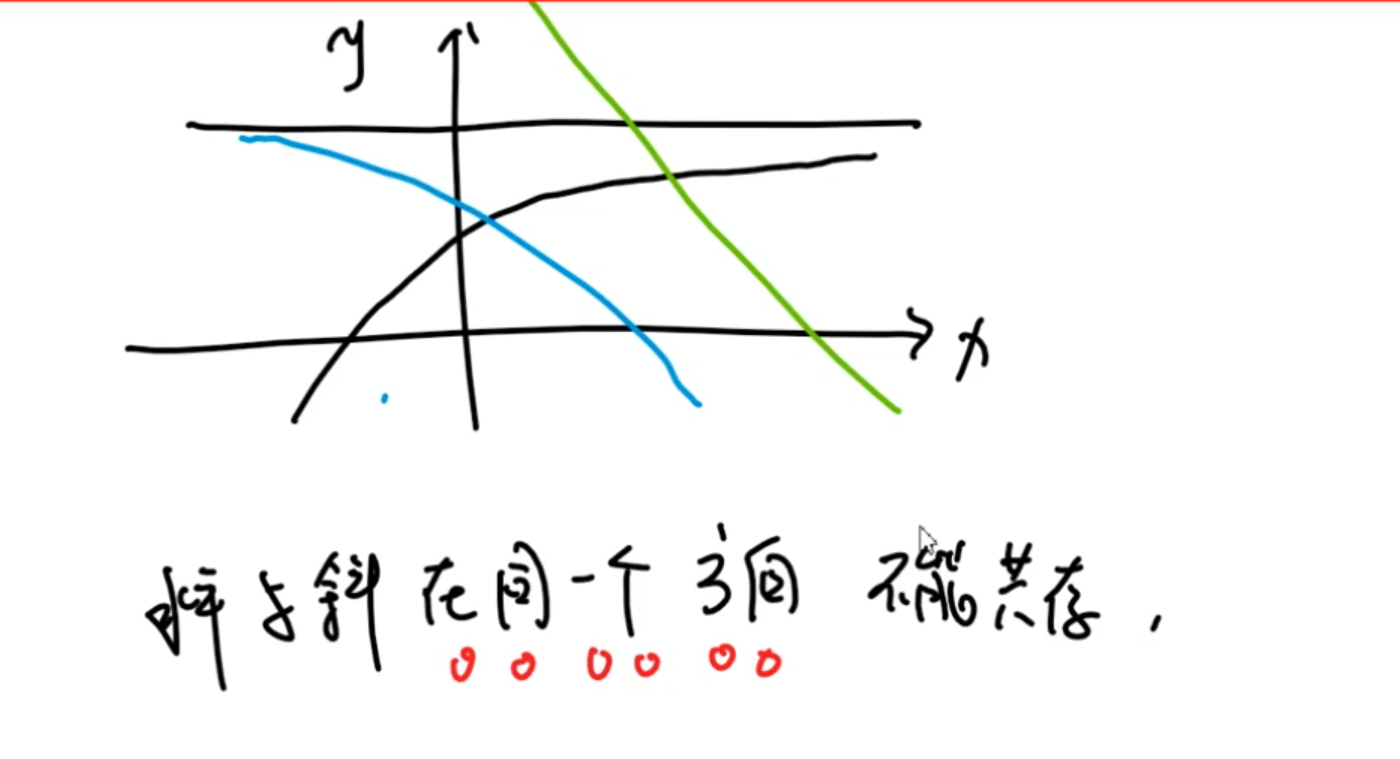 y
x
水平与斜在同一个方向不能共存，